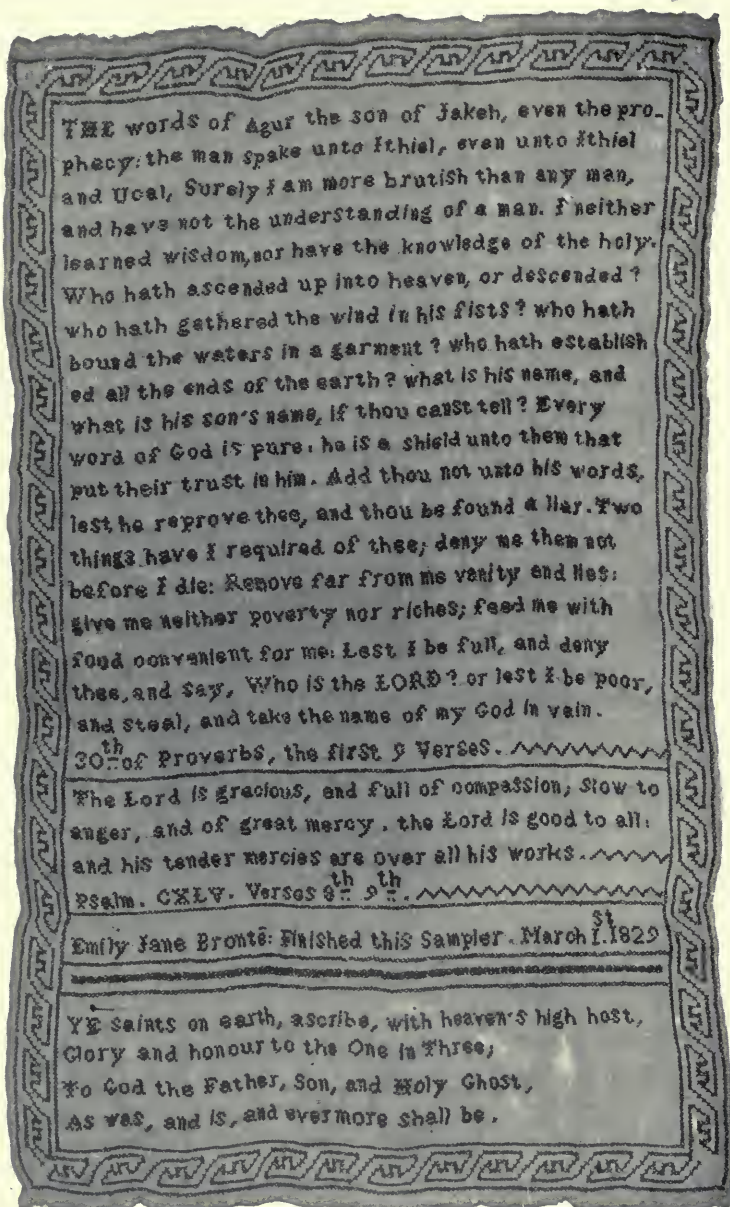 THE words of Agur the son of Jakeh, even the pro-
phecy: the man spake unto Ithiel, even unto Ithiel
and Ucal, Surely I am more brutish than any man,
and have not the understanding of a man. I neither
learned wisdom, nor have the knowledge of the holy.
Who hath ascended up into heaven, or descended?
who hath gathered the wind in his fists? who hath
bound the waters in a garment? who hath establish
ed all the ends of the earth? what is his name, and
what is his son's name, if thou canst tell? Every
word of God is pure: he is a shield unto them that
put their trust in him. Add thou not unto his words,
lest he reprove thee, and thou be found a liar. Two
things have I required of thee; deny me them not
before I die: Remove far from me vanity and lies:
give me neither poverty nor riches; feed me with
food convenient for me: Lest I be full, and deny
thee, and say, Who is the LORD? or lest I be poor,
and steal, and take the name of my God in vain.
30th of Proverbs, the first 9 Verses.
The Lord is gracious, and full of compassion; Slow to
anger, and of great mercy. the Lord is good to all:
and his tender mercies are over all his works.
Psalm. CXLV. Verses 8th 9th.
Emily Jane Brontë: Finished this Sampler. March 1st. 1829
YE saints on earth, ascribe, with heaven's high host,
Glory and honour to the One in Three;
To God the Father, Son, and Holy Ghost,
As was, and is, and evermore shall be.